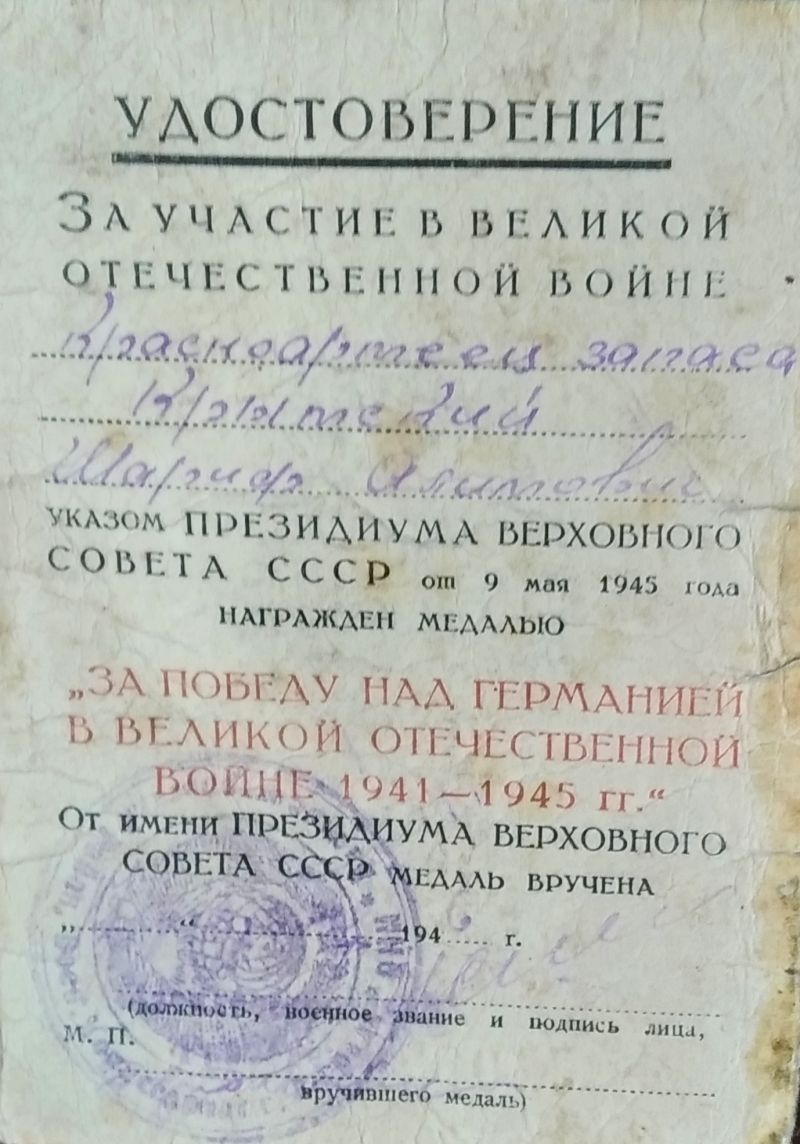 УДОСТОВЕРЕНИЕ
ЗА УЧАСТИЕ В ВЕЛИКОЙ
ОТЕЧЕСТВЕННОЙ ВОЙНЕ
Красноармеец запаса
Крымский
Шариф Алимович
УКАЗОМ ПРЕЗИДИУМА ВЕРХОВНОГО
СОВЕТА СССР от 9 мая 1945 года
НАГРАЖДЕН МЕДАЛЬЮ
„ЗА ПОБЕДУ НАД ГЕРМАНИЕЙ
В ВЕЛИКОЙ ОТЕЧЕСТВЕННОЙ
ВОЙНЕ 1941—1945 гг.“
ОТ ИМЕНИ ПРЕЗИДИУМА ВЕРХОВНОГО
СОВЕТА СССР МЕДАЛЬ ВРУЧЕНА
„ “ 194 г.
(должность, военное звание и подпись лица,
М. П.
вручившего медаль)